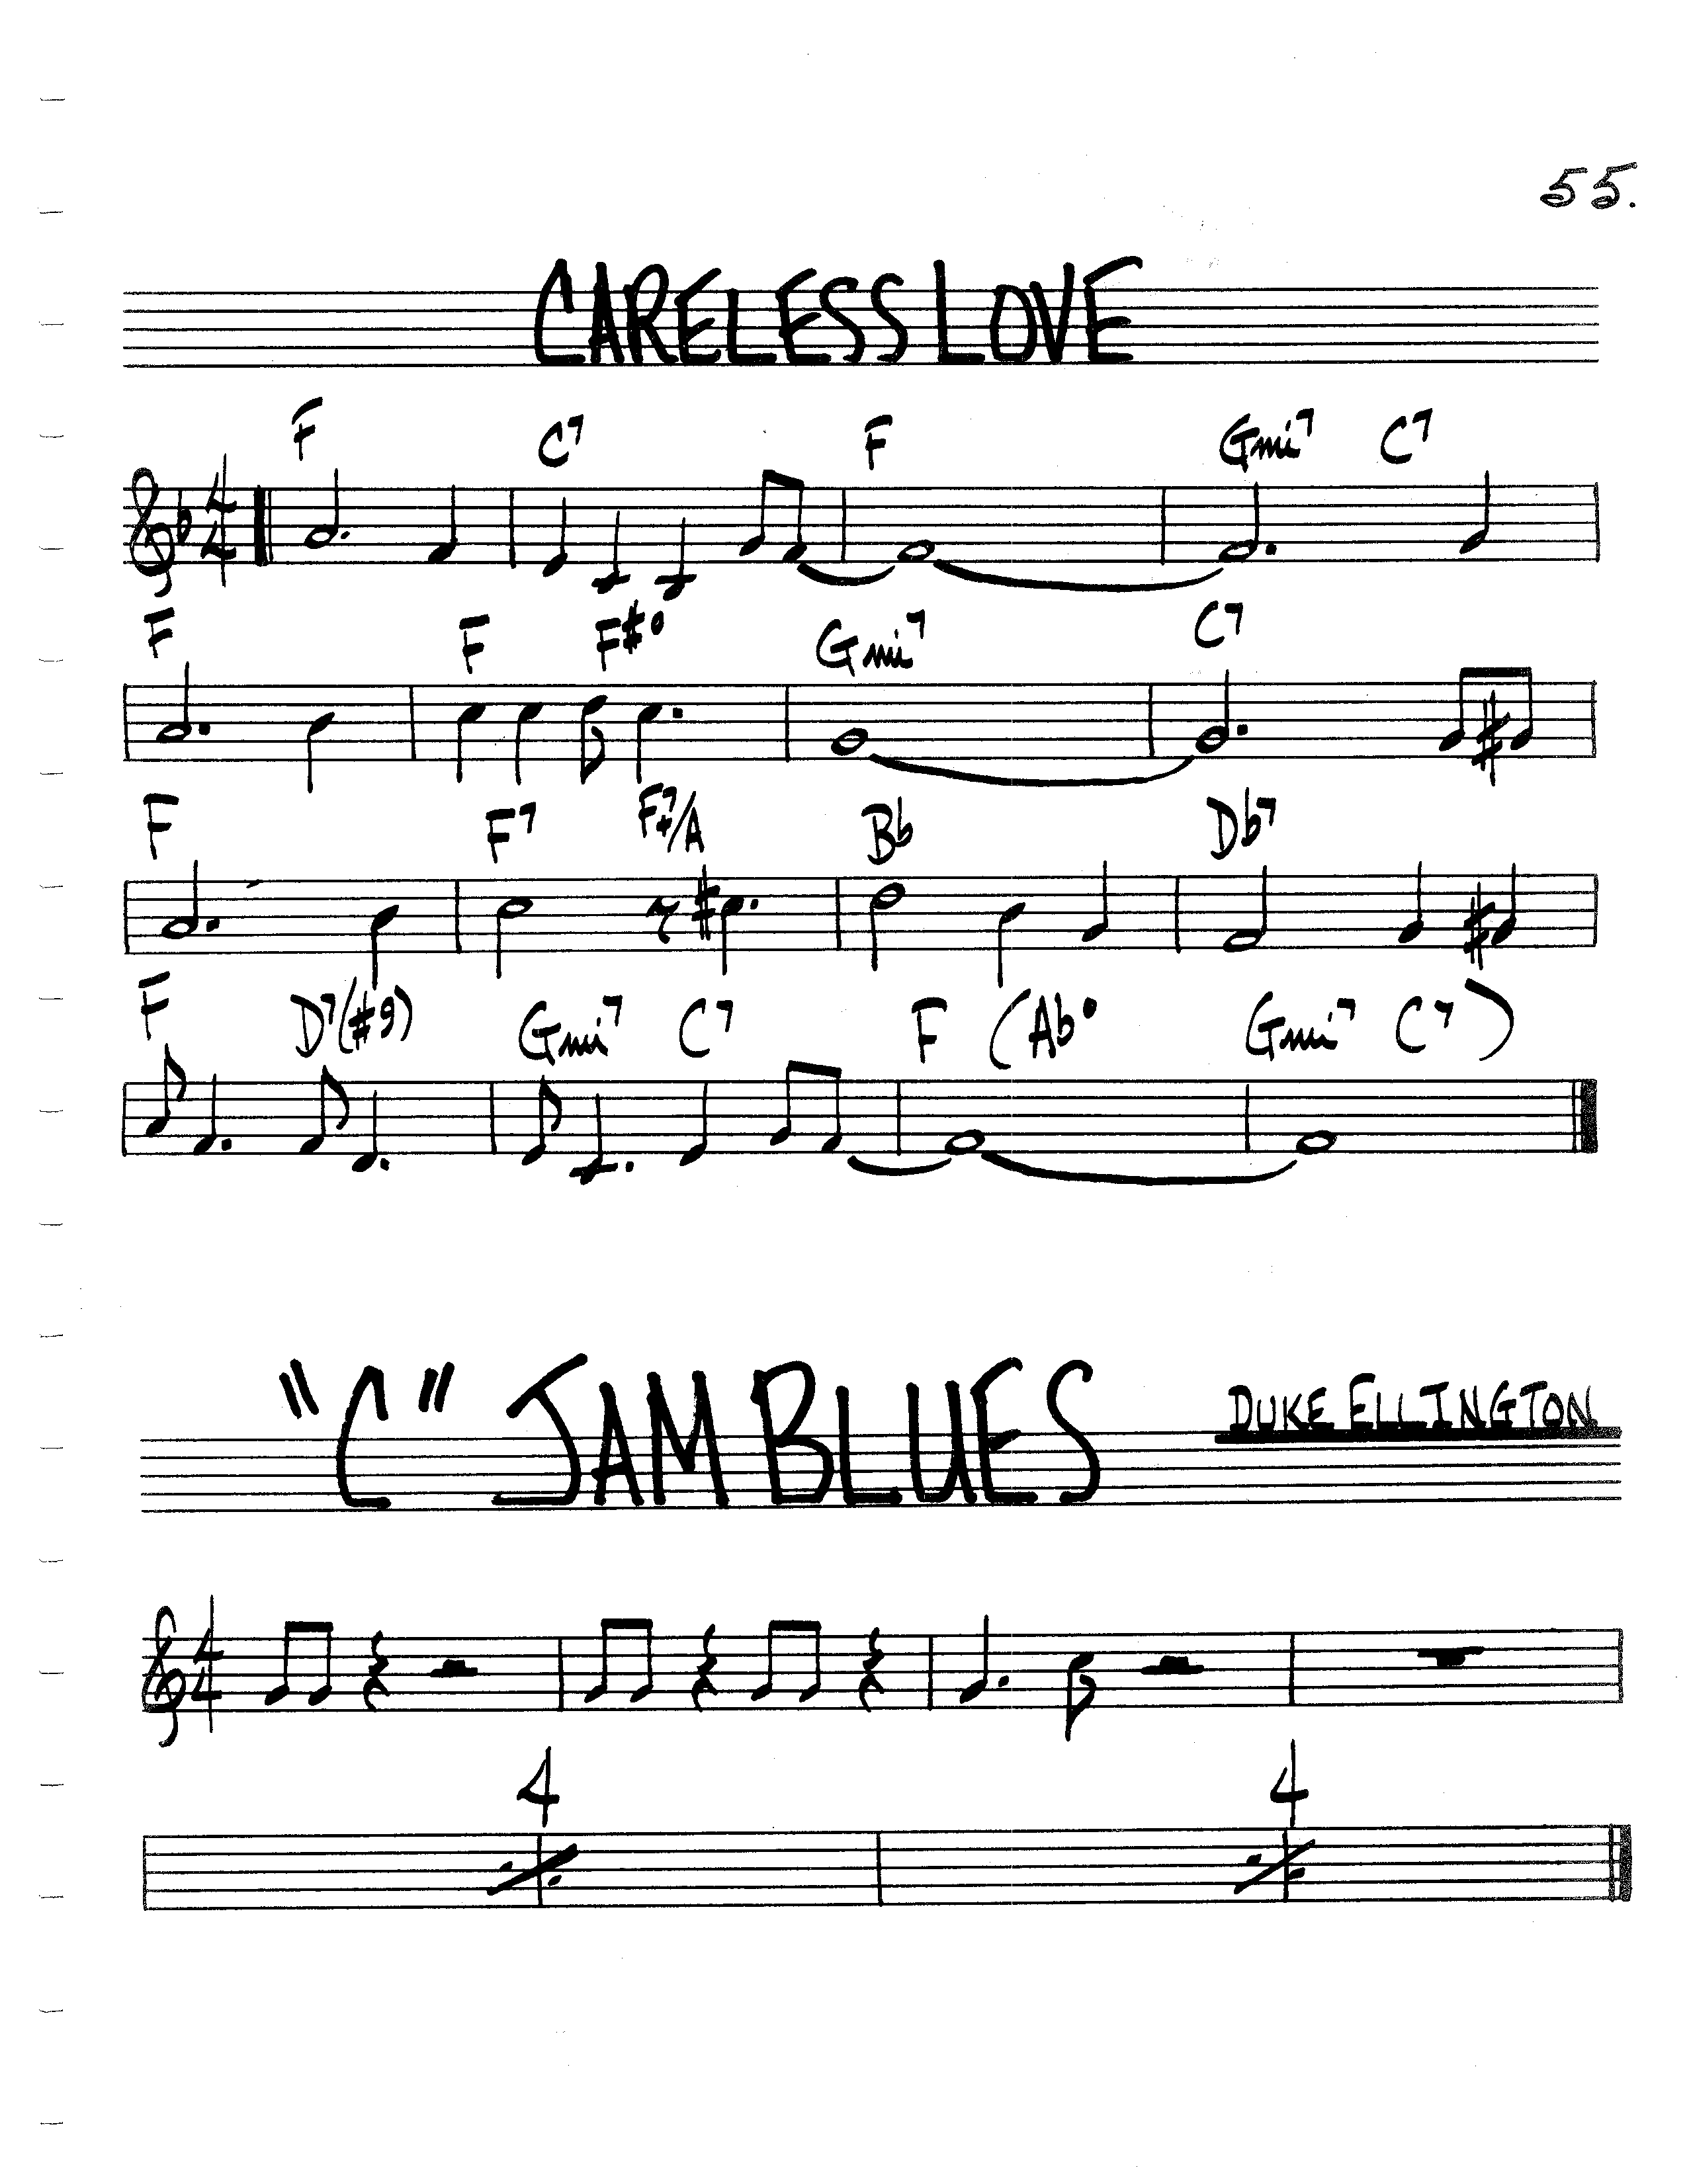 55.
CARELESS LOVE
F C7 F Gmi7 C7
4
4
F F F#° Gmi7 C7
F F7 F+7/A Bb Db7
F D7(#9) Gmi7 C7 F (Ab° Gmi7 C7)
"C" JAM BLUES DUKE ELLINGTON
4
4
4 4